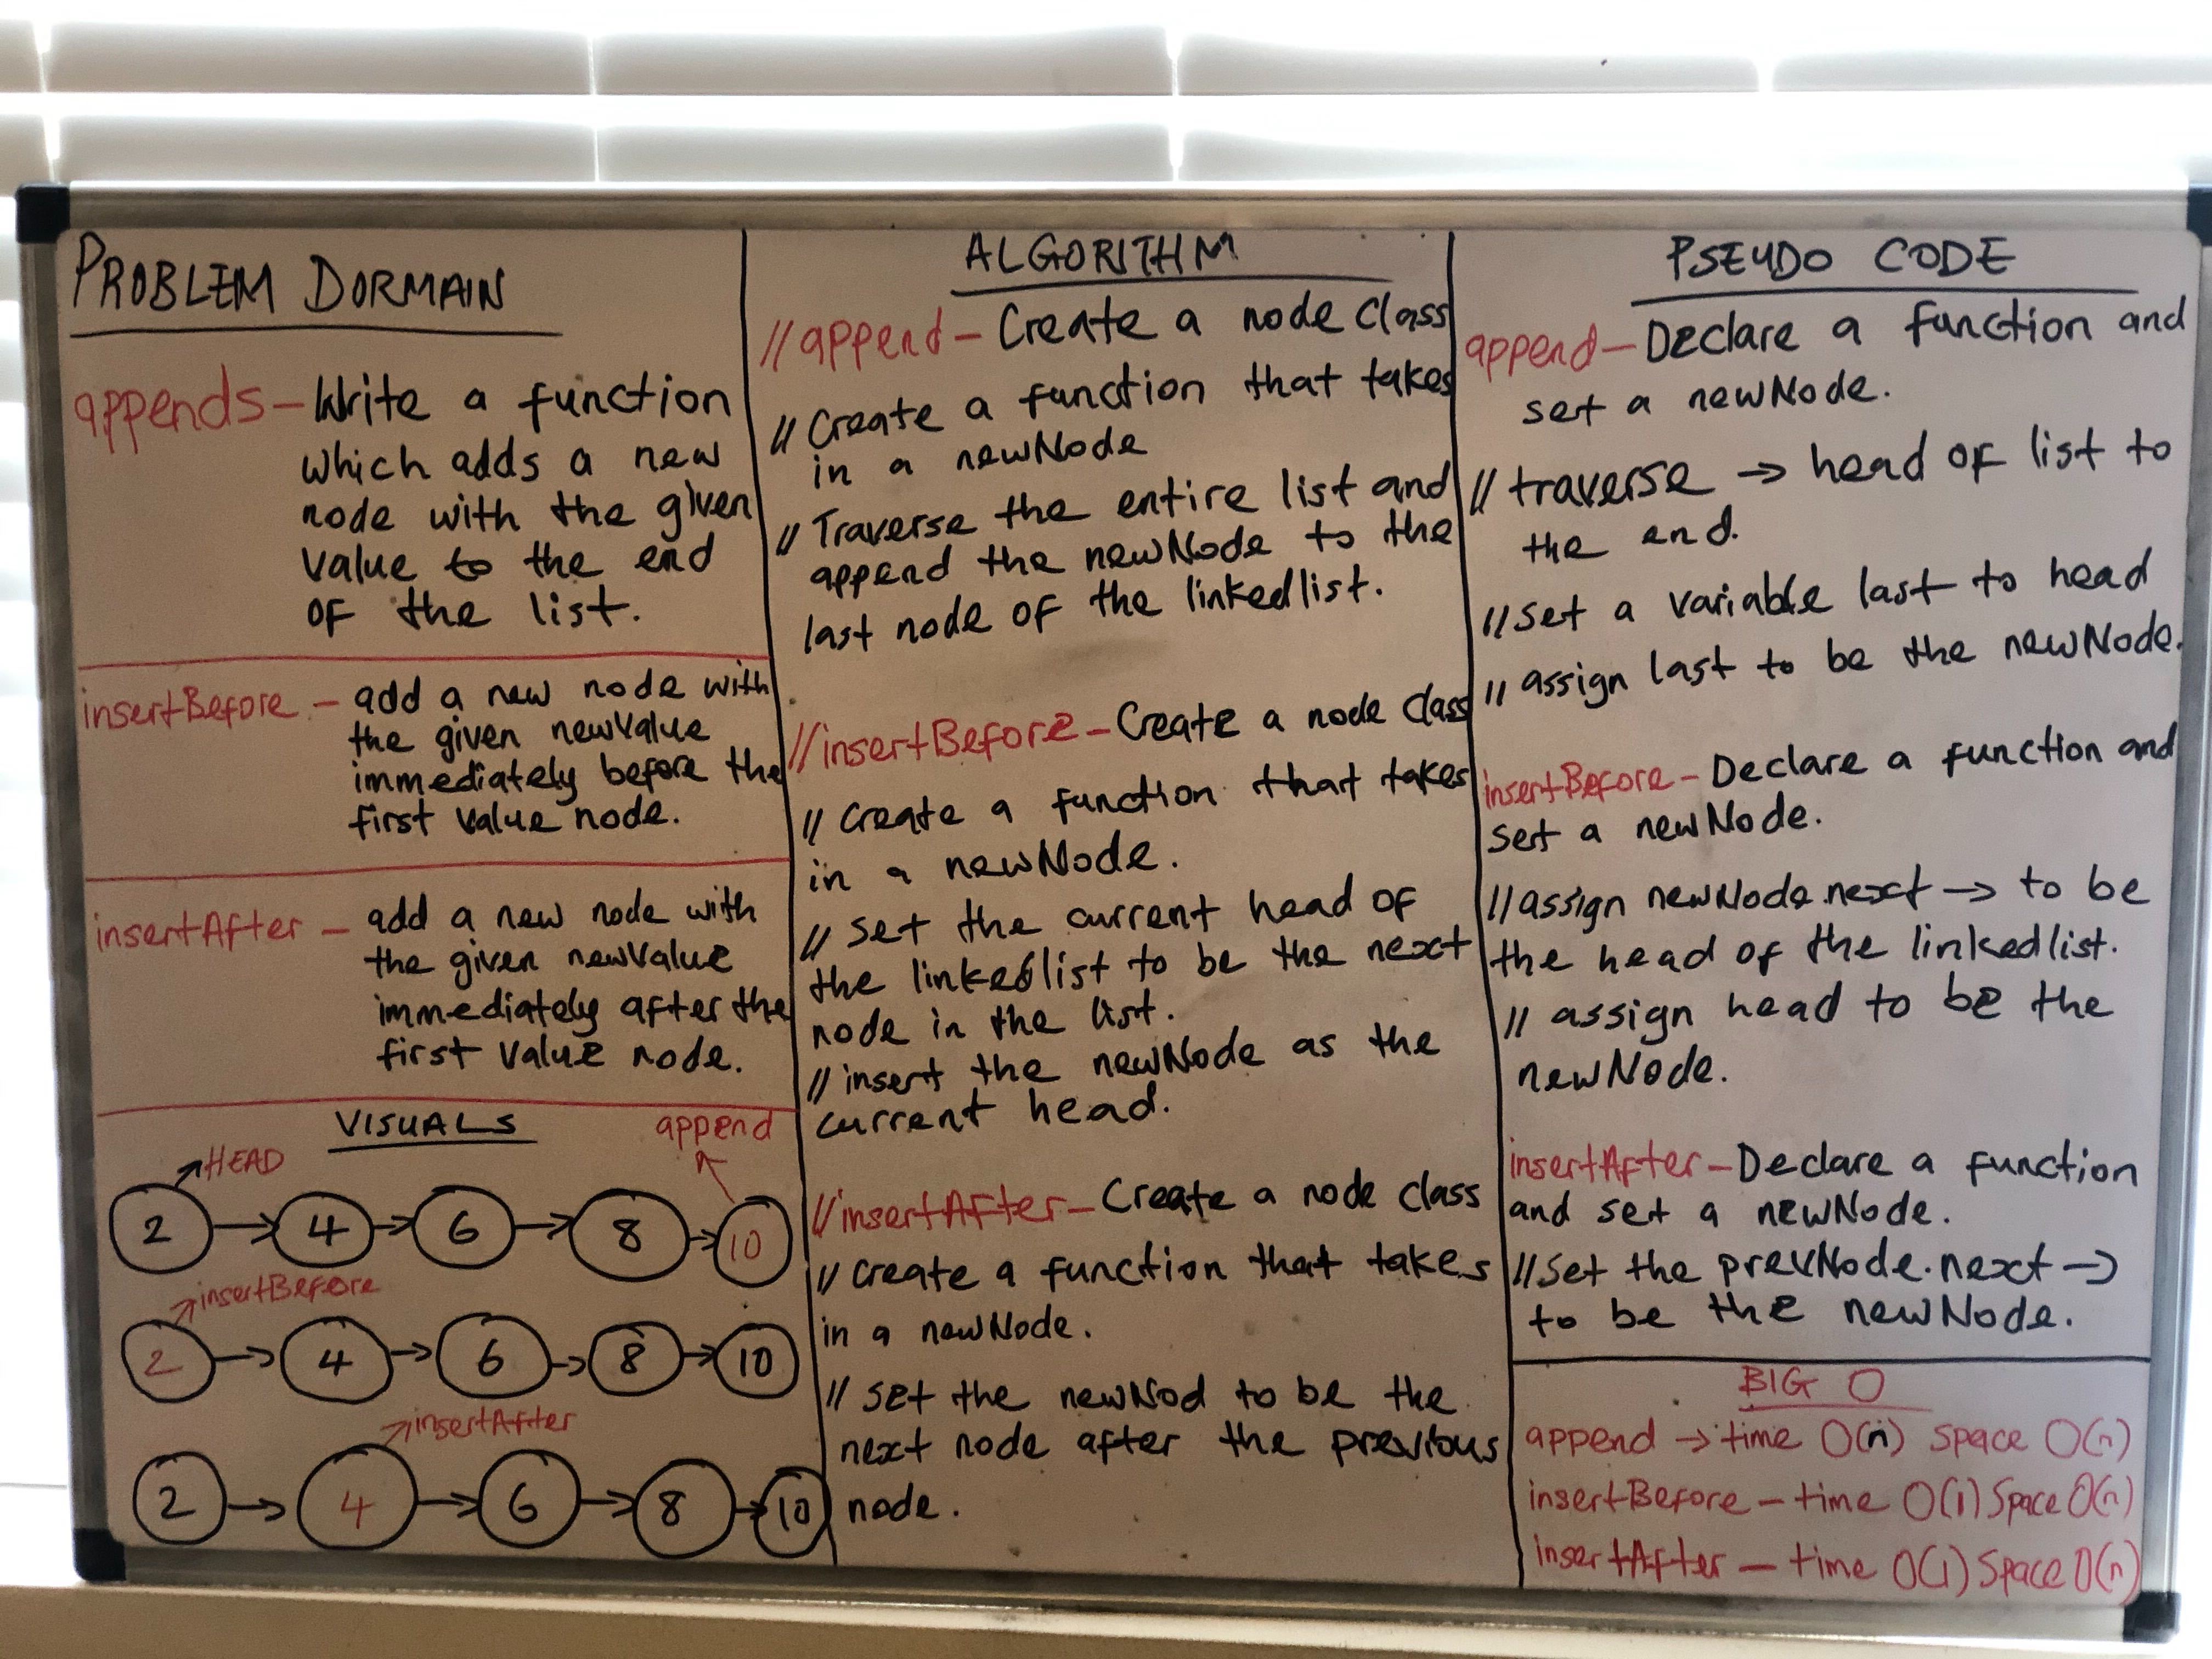 PROBLEM DORMAIN
appends - Write a function
which adds a new
node with the given
value to the end
of the list.
insertBefore - add a new node with
the given newValue
immediately before the
first value node.
insertAfter - add a new node with
the given newValue
immediately after the
first value node.
VISUALS
append
HEAD
2 → 4 → 6 → 8 → 10
insertBefore
2 → 4 → 6 → 8 → 10
insertAfter
2 → 4 → 6 → 8 → 10
ALGORITHM
//append - Create a node class
// Create a function that takes
in a newNode
// Traverse the entire list and
append the newNode to the
last node of the linkedlist.
//insertBefore - Create a node class
// create a function that takes
in a newNode.
// set the current head of
the linkedlist to be the next
node in the list.
// insert the newNode as the
current head.
//insertAfter - Create a node class
// create a function that takes
in a newNode.
// set the newNod to be the
next node after the previous
node.
PSEUDO CODE
append - Declare a function and
set a newNode.
// traverse → head of list to
the end.
//set a variable last to head
// assign last to be the newNode.
insertBefore - Declare a function and
set a newNode.
//assign newNode.next → to be
the head of the linkedlist.
// assign head to be the
newNode.
insertAfter - Declare a function
and set a newNode.
//Set the prevNode.next →
to be the newNode.
BIG O
append → time O(n) space O(n)
insertBefore - time O(1) Space O(n)
insertAfter - time O(1) Space O(n)